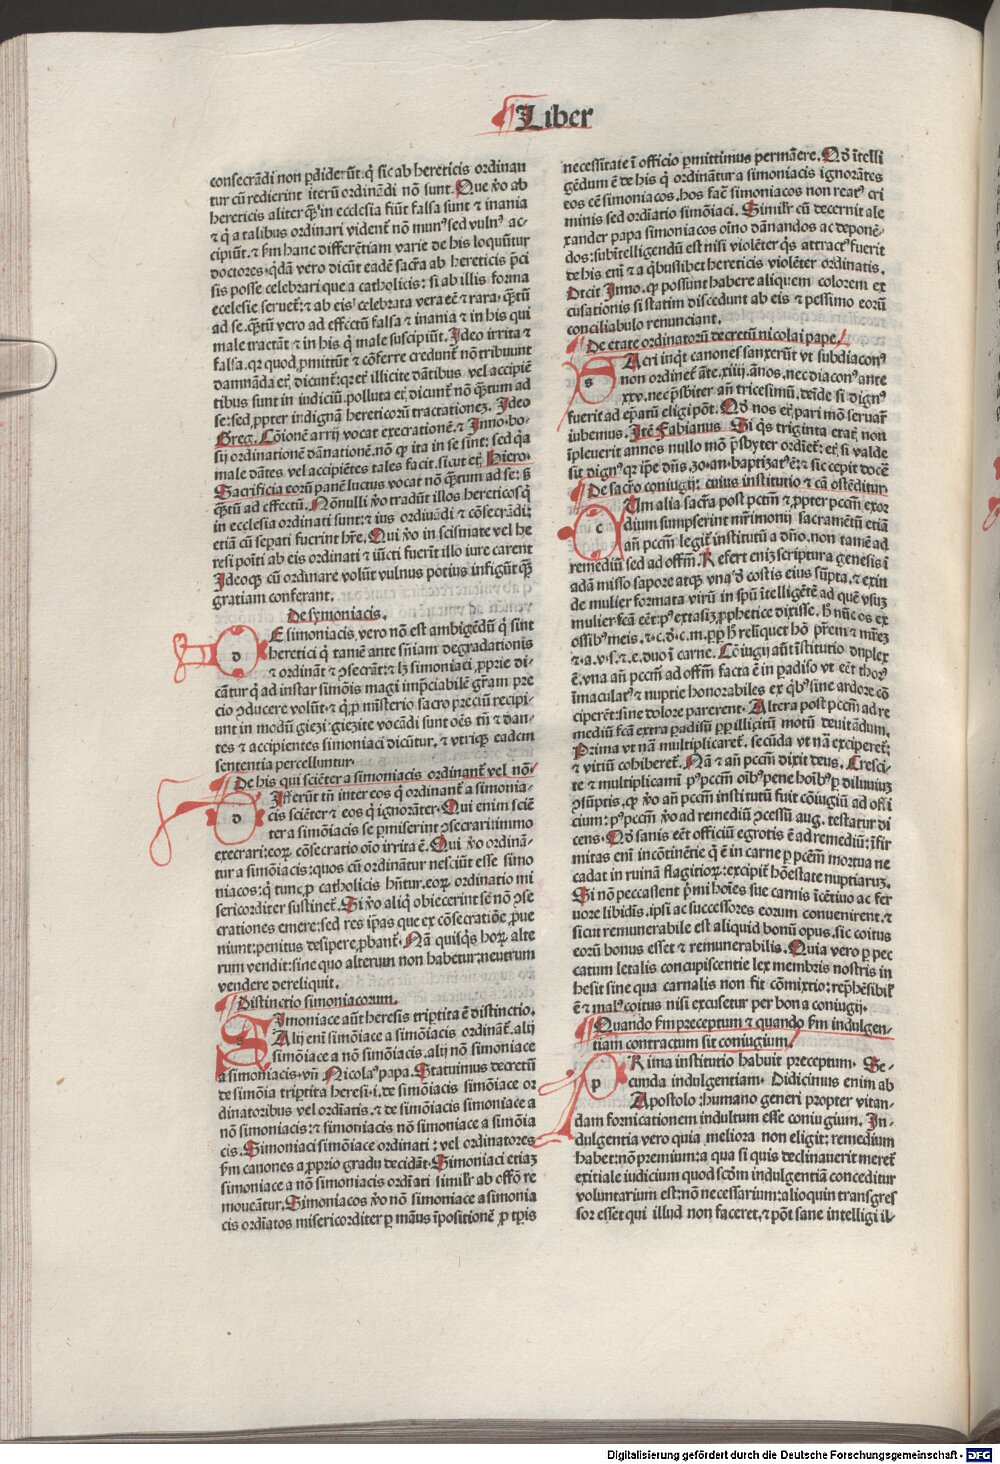 Liber
consecrādi non ꝑdiderūt: q̇ sic ab hereticis ordinan
tur cū redierint iterū ordinādi nō sunt. Que v̄o ab
hereticis aliter q̄ꝫ in ecclesia fiūt falsa sunt ⁊ inania
⁊ q̇ a talibus ordinari vident᷑ nō munꝰ sed vulnꝰ ac-
cipiūt. ⁊ ẜm hanc differētiam varie de his loquūtur
doctores. qdā vero dicūt eadē sacr̄a ab hereticis p̄ci
sis posse celebrari que a catholicis: si ab illis forma
ecclesie seruet᷑: ⁊ ab eisꝰ celebrata vera eē ⁊ rara. q̄ꝫtū
ad se. q̄ꝫtū vero ad effectū falsa ⁊ inania ⁊ in his qui
male tractāt ⁊ in his q̇ male suscipiūt. Ideo irrita ⁊
falsa. qꝛ quod ꝓmittūt ⁊ cōferre credunt᷑ nō tribuunt
damnāda et᷒ dicunt᷑: qꝛ et᷒ illicite dātibus vel accipiē
tibus sunt in indiciū. polluta et᷒ dicunt᷑ nō q̄ꝫtum ad
se: sed ꝓpter indignā hereticorū tractationeꝫ. Ideo
Greg. Cōionē arrij vocat execrationē. ⁊ Inno. bo-
sij ordinationē dānationē. nō ꝙ ita in se sint: sed q̇a
male dātes vel accipiētes tales facit. sicut et᷒ Hiero.
Sacrificia eorū panē luctus vocat nō q̄ꝫtum ad se: ꝫ
q̄ꝫtū ad effectū. Nōnulli v̄o tradūt illos hereticos q̇
in ecclesia ordinati sunt: ⁊ ius ordinādi ⁊ cōsecrādi:
etiā cū sepati fuerint hr̄e. Qui v̄o in scismate vel he
resi poīti ab eis ordinati ⁊ iūcti fuerīt illo iure carent
Ideoqꝫ cū ordinare volūt vulnus potius infigūt q̄ꝫ
gratiam conferant.
De symoniacis.
d E simoniacis vero nō est ambigēdū q̇ sint
heretici q̇ tamē ante sn̄iam degradationis
⁊ ordināt ⁊ ↄsecrāt: lꝫ simoniaci ꝓprie di-
cātur q̇ ad instar simōis magi imp̄ciabilē gr̄am pre
cio ↄducere volūt. ⁊ q̇ ꝓ mīsterio sacro preciū recipi-
unt in modū giezi: giezite vocādi sunt oēs tn̄ ⁊ dan-
tes ⁊ accipientes simoniaci dicūtur. ⁊ vtriqꝫ eadem
sententia percelluntur
De his qui sciēter a simoniacis ordinant᷑ vel nō
d Ifferūt tn̄ inter eos q̇ ordinant᷑ a simonia-
cis sciēter ⁊ eos q̇ ignorāter. Qui enim sciē
ter a simōiacis se ꝑmiserint ↄsecrari: immo
execrari: eoꝝ cōsecratio oīo irrita ē. Qui v̄o ordinā-
tur a simōiacis: quos cū ordinātur nesciūt esse simo
niacos: q̇ tunc ꝓ catholicis hn̄tur. eoꝝ ordinatio mi
sericorditer sustinet᷑. Si v̄o aliq̇ obiecerint se nō ↄse
crationes emere: sed res ip̄as que ex cōsecratiōe ꝓue
niunt: penitus desipere ꝓbant᷑. Nā quisq̇s hoꝝ alte
rum vendit: sine quo alterum non habetur: neutrum
vendere dereliquit.
Distinctio simoniacorum.
S Imoniace aūt heresis triptita ē distinctio.
Alij eni simōiace a simōiacis ordinant᷑. alij
simōiace a nō simōiacis. alij nō simoniace
a simoniacis. vn̄ Nicolaꝰ papa. Statuimus decretū
de simōia triptita heresi. i. de simōiacis simōiace or
dinatoribus vel ordīatis. ⁊ de simōiacis simoniace a
nō simōiacis: ⁊ simoniacis nō simōiace a simōia
cis. Simoniaci simōiace ordinati: vel ordinatores
ẜm canones a ꝓprio gradu decidāt. Simoniaci etiaꝫ
simoniace a nō simoniacis ordīati simil᷑r ab offō re
moueātur. Simoniacos v̄o nō simoniace a simonia
cis ordīatos misericorditer ꝑ māus īpositionē ꝓ tp̄is
necessitate ī officio ꝑmittimus permāere. Qd̓ ītelli
gēdum ē de his q̇ ordināntur a simoniacis ignorātes
eos eē simoniacos. hos fac̄ simoniacos non reatꝰ cri
minis sed ordīatio simōiaci. Simil᷑r cū decernit ale
xander papa simoniacos oīno dānandos ac depone-
dos: subītelligendū est nisi violēter q̇s attractꝰ fuerit
de his enī ⁊ a q̇bustibet hereticis violēter ordinatis.
Dicit Inno. ꝙ possūnt habere aliquem colorem ex
cusationis si statim discedunt ab eis ⁊ pessimo eorū
conciliabulo renunciant.
De etate ordinatorū decretū nicolai pape.
S Acri inq̇t canones sanxerūt vt subdiaconꝰ
non ordinet᷑ āte. xiiij. ānos. nec diaconꝰ ante
xxv. nec p̄sbiter an̄ tricesimū. deīde si dignꝰ
fuerit ad ep̄atū eligi pōt. Qd̓ nos et᷒ pari mō seruar̄
iubemus. Itē Fabianus Si q̇s triginta etat᷒ non
īpleuerit annos nullo mō p̄sbyter ordīet᷑: et᷒ si valde
sit dignꝰ qꝛ ip̄e dn̄s. 30. an. baptizatꝰ ē: ⁊ sic cepit docē
De sacr̄o coniugij: cuius institutio ⁊ cā ostēditur
C Vm alia sacr̄a post pctm̄ ⁊ ꝓpter pccm̄ exor
dium sumpserint mr̄imonij sacramētū etiā
an̄ pccm̄ legit᷑ institutū a dn̄o. non tamē ad
remediū sed ad offm̄. Refert eniꝫ scriptura genesis ī
adā misso sapore atqꝫ vna d̓ costis eius sūpta. ⁊ exin
de mulier formata virū in sp̄u ītelligētē ad quē vsuꝫ
mulier fcā eēt: pꝰ extasiꝫ ꝓphetice dixisse. h̄ nūc os ex
ossibꝰ meis. ⁊ c. d̓. c. m. ꝓp h̄ relīquet hō pr̄em ⁊ mr̄eꝫ
⁊ a. v. s. ⁊ e. duo ī carne. Cōiugij aūt īstitutio duplex
ē. vna an̄ pccm̄ ad offm̄ facta ē in ꝑadiso vt eēt thorꝰ
īmaculatꝰ ⁊ nuptie honorabiles ex q̇bꝰ sine ardore cō
ciperēt: sine dolore parerent. Altera post pccm̄ ad re
mediū fcā extra ꝑadisū ꝓp illicitū motū deuitādum.
Prima vt nā multiplicaret᷑. secūda vt nā exciperet᷑:
⁊ vitiū cohiberet᷑. Nā ⁊ an̄ pccm̄ dixit deus. Cresci-
te ⁊ multiplicamī pꝰ pccm̄ oībꝰ pene hoībꝰ ꝑ diluuiuꝫ
ↄsūptis. ꝙ v̄o an̄ pccm̄ institutū fuit cōiugiū ad offi
cium: pꝰ pccm̄ v̄o ad remediū ↄcessū aug. testatur di
cens. Qd̓ sanis eēt officiū egrotis ē ad remediū: īfir
mitas enī incōtinētie q̇ ē in carne ꝑ pccm̄ mortua ne
cadat in ruinā flagitioꝝ: excipit᷑ hōestate nuptiaruꝫ.
Si nō peccassent p̄mi hoīes sue carnis īcētiuo ac fer
uore libidīs. ipsi ac successores eorum conuenirent. ⁊
sicut remunerabile est aliquid bonū opus. sic coitus
eorū bonus esset ⁊ remunerabilis. Quia vero ꝑ pec
catum letalis concupiscentie lex membris nostris in
hesit sine qua carnalis non fit cōmixtio: rep̄hēsibil᷑
ē ⁊ malꝰ coitus nisi excusetur per bona coniugij.
Quando ẜm preceptum ⁊ quando ẜm indulgen-
tiam contractum sit coniugium.
p Rima institutio habuit preceptum. Se-
cunda indulgentiam. Didicimus enim ab
Apostolo: humano generi propter vitan-
dam fornicationem indultum esse coniugium. In-
dulgentia vero quia meliora non eligit: remedium
habet: nō premium: a qua si quis declinauerit meret᷑
exitiale iudicium quod scd̓m indulgentiā conceditur
voluntarium est: nō necessarium: alioquin transgres
sor esset qui illud non faceret. ⁊ pōt sane intelligi il-
Digitalisierung gefördert durch die Deutsche Forschungsgemeinschaft - DFG